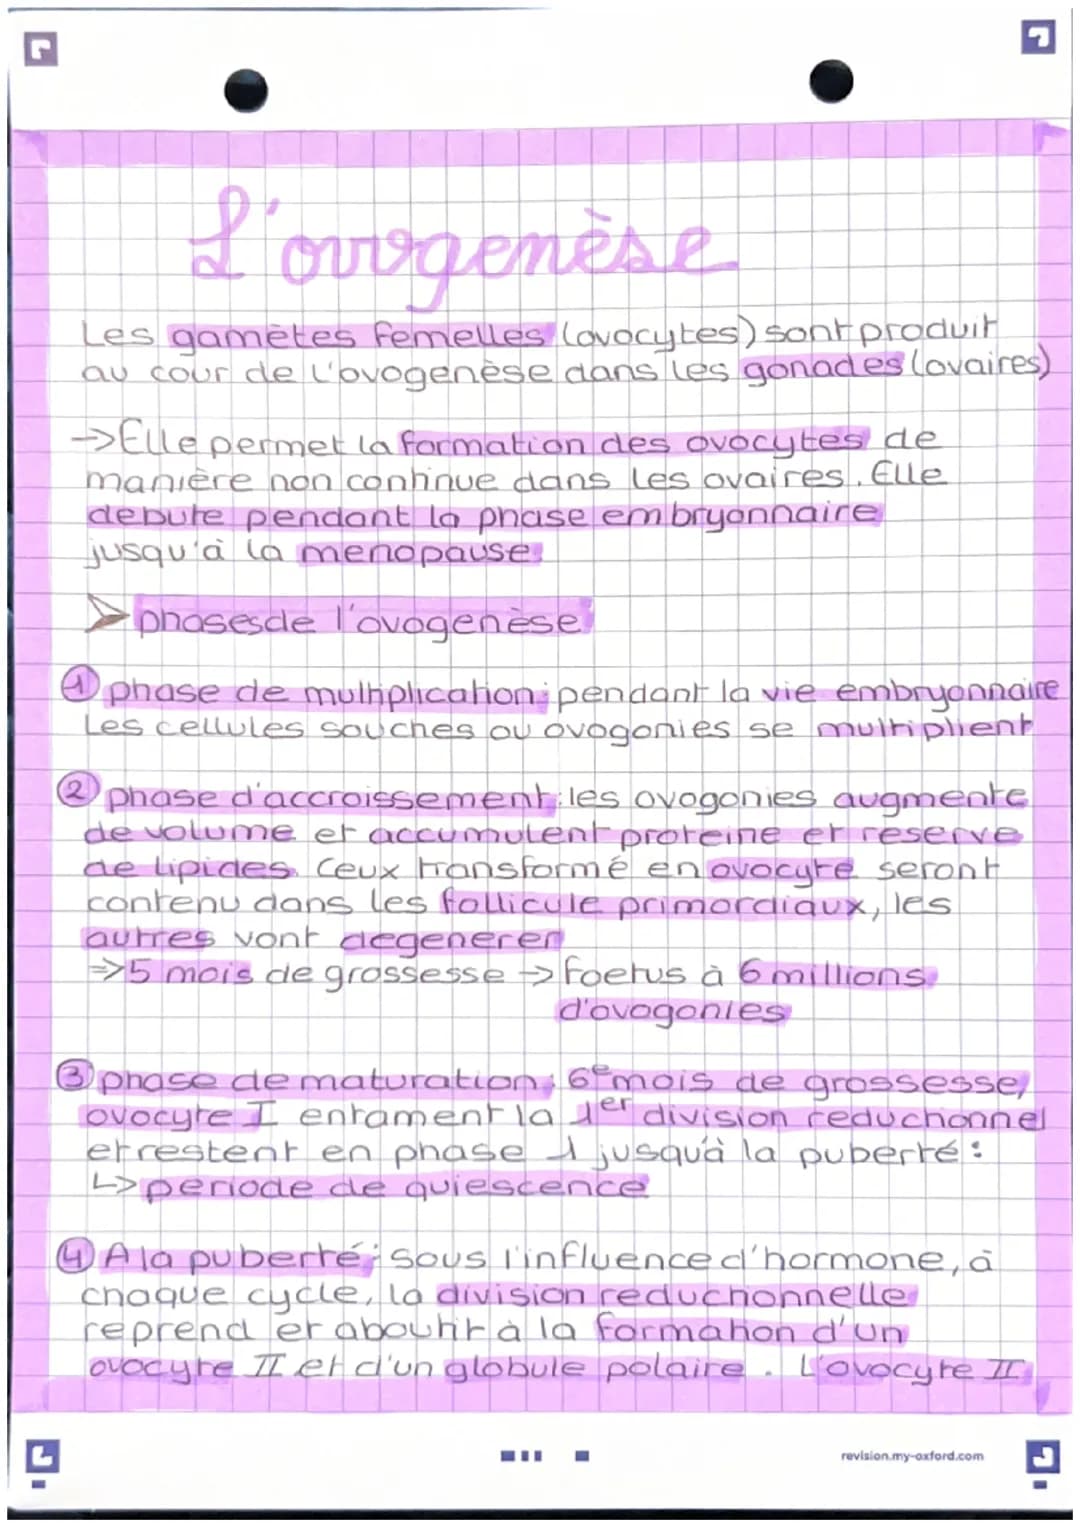 L'ovogenèse
Les gamètes femelles (ovocytes) sont produit
au cour de l'ovogenèse dans les gonades (ovaires)
->Elle permet la formation des ovocytes de
manière non continue dans les ovaires. Elle
debute pendant la phase embryonnaire
jusqu'à la menopause.
➢ phases de l'ovogenèse
① phase de multiplication: pendant la vie embryonnaire
Les cellules souches ou ovogonies se multiplient
② phase d'accroissement: les ovogonies augmente
de volume et accumulent proteine et reserve
de lipides. Ceux transformé en ovocyte seront
contenu dans les follicule primordiaux, les
autres vont degenerer
=>5 mois de grossesse -> foetus à 6 millions
d'ovogonies
③ phase de maturation: 6e mois de grossesse,
ovocyte I entament la 1er division reductionnel
et restent en phase 1 jusqu'à la puberté:
↳> periode de quiescence
④ A la puberté: sous l'influence d'hormone, à
chaque cycle, la division reductionnelle
reprend et aboutit à la formation d'un
ovocyte II et d'un globule polaire. L'ovocyte II
revision.my-oxford.com